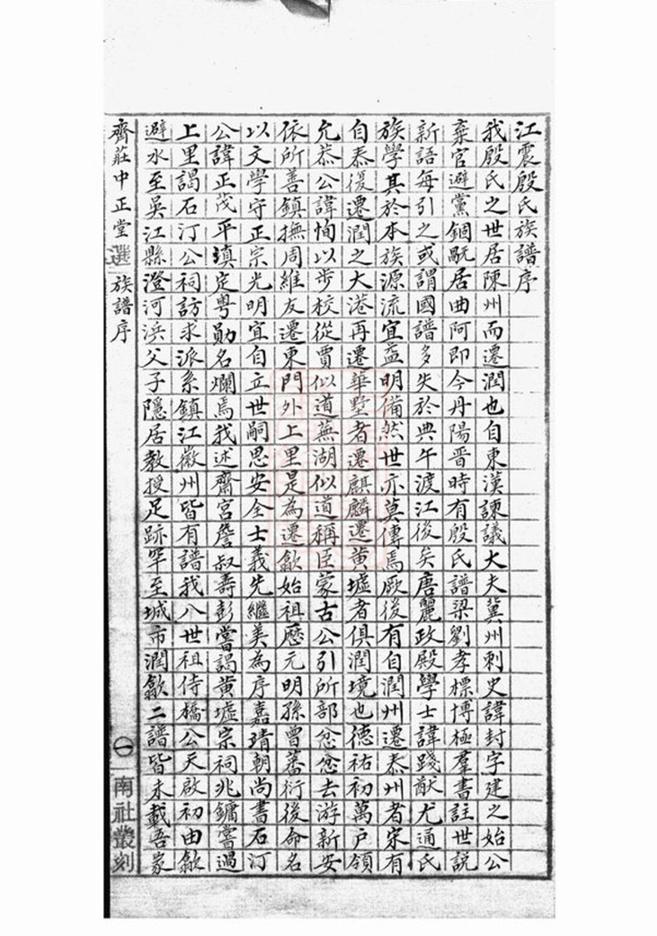 江震殷氏族譜序
我殷氏之世居陳州而遷潤也自東漢諫議大夫冀州刺史諱封字建之始公
棄官避黨錮㽞居曲阿即今丹陽晉時有殷氏譜梁劉孝標博極羣書註世說
新語每引之或謂國譜多失於典午渡江後矣唐麗政殿學士諱踐猷尤通氏
族學其於本族源流宜益明備然世亦莫傳焉厥後有自潤州遷泰州者宋有
自泰復遷潤之大港再遷華墅者遷麒麟遷黄墟者俱潤境也德祐初萬戶領
允恭公諱恂以步校從賈似道蕪湖似道稱臣蒙古公引所部忿忿去游新安
依所善鎮撫周維友遷東門外上里是為遷歙始祖歷元明孫曾蕃衍後命名
以文學守正宗光明宜自立世嗣思安全士義先繼美為序嘉靖朝尚書石汀
公諱正茂平填定粤勛名爛焉我述齋宮詹叔壽彭嘗謁黄墟宗祠兆鏞嘗過
上里謁石汀公祠訪求派系鎮江徽州皆有譜我八世祖侍橋公天啟初由歙
避水至吳江縣澄河浜父子隱居教授足跡罕至城市潤歙二譜皆未載吾家
齊莊中正堂選 族譜序 一 南社叢刻